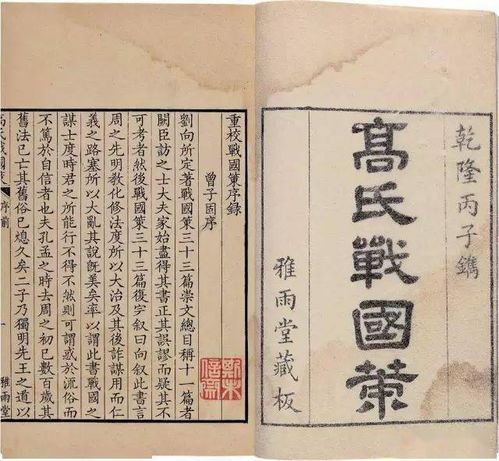 乾隆丙子鐫
高氏戰國策
雅雨堂藏板
重校戰國策序録
曾子固序
劉向所定著戰國策三十三篇崇文總目稱十一篇者
闕臣訪之士大夫家始盡得其書正其誤謬而疑其不
可考者然後戰國策三十三篇復完叙曰向叙此書言
周之先明敎化修法度所以大治及其後詐謀用而仁
義之路塞所以大亂其說旣美矣率以謂此書戰國之
謀士度時君之所能行不得不然則可謂惑於流俗而
不篤於自信者也夫孔孟之時去周之初已數百歲其
舊法已亡其舊俗已熄久矣二子乃獨明先王之道以
高氏戰國策
序前
一
雅雨堂